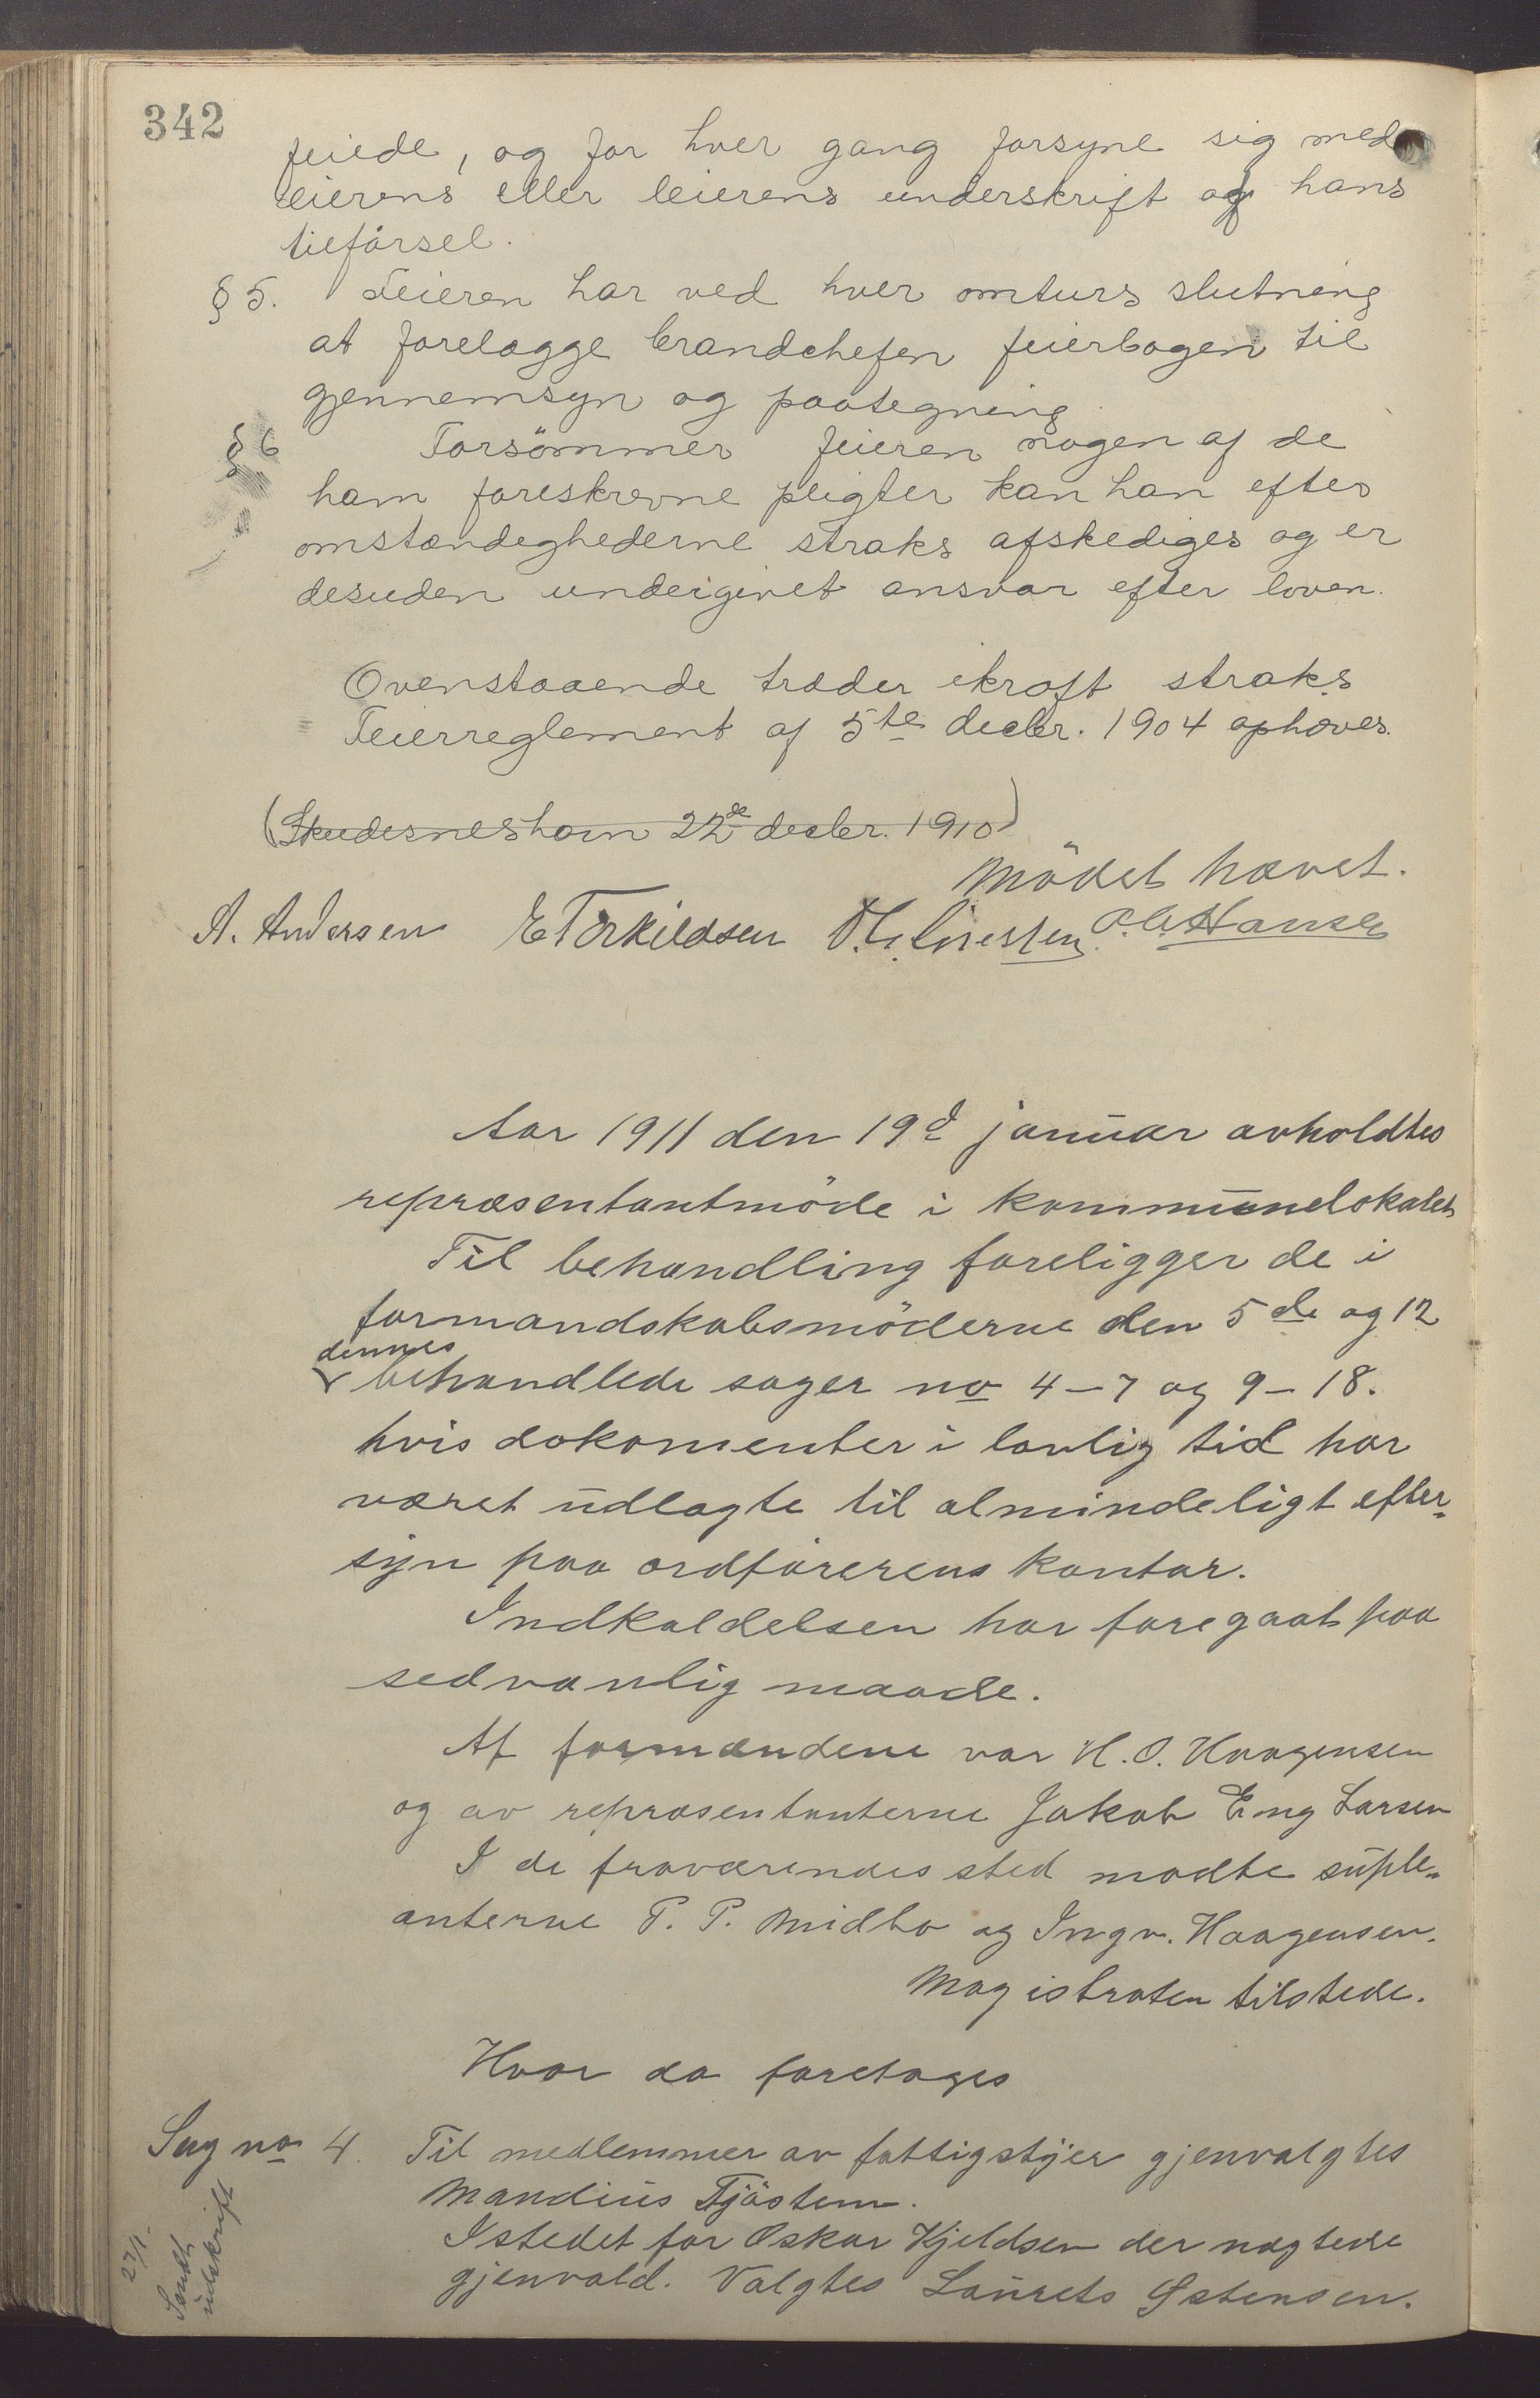 342
feiede, og for hver gang forsyne sig med
eierens eller leierens underskrift og hans
tilförsel.
§ 5. Feieren har ved hver omturs slutning
at forelægge brandchefen feierbogen til
gjennemsyn og paategning.
§ 6 Forsömmer feieren nogen af de
ham foreskrevne pligter kan han efter
omstændeghederne straks afskediges og er
desuden undergivet ansvar efter loven.
Ovenstaaende træder ikraft straks
Feierreglement af 5te decbr. 1904 ophæves.
(Skudesneshavn 22de decbr. 1910)
Mödet hævet.
A. Andersen E Torkildsen Hansen
Aar 1911 den 19d januar avholdtes
repræsentantmöde i kommunelokalet
Til behandling foreligger de i
formandskabsmöderne den 5de og 12
dennes
behandlede sager no 4-7 og 9-18.
hvis dokomenter i lovlig tid har
været udlagte til almindeligt efter-
syn paa ordförerens kontor.
Indkaldelsen har foregaat paa
sedvanlig maade.
Af formændene var H. O. Haagensen
og av repræsentanterne Jakob Eng Larsen
I de fraværendes sted mødte suple-
anterne P. P. Midbø og Ingv. Haagensen.
Magistraten tilstede.
Hvor da foretoges
Sag no 4. Til medlemmer av fattigstyer gjenvalgtes
Mandius Tjöstem.
Istedet for Oskar Kjeldsen der nægtede
gjenvald. Valgtes Laurets Östensen.
27/1.
Sendt
udskrift